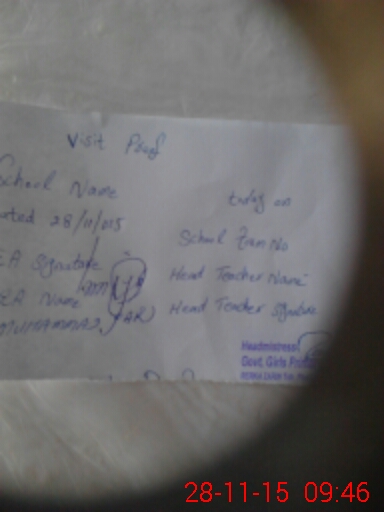 Visit Proof
School Name
today on
ated 28/11/015
School Emis No
EA Signature
Head Teacher Name
EA Name
Head Teacher Signature
MUHAMMAD
Headmistress
Govt. Girls
28-11-15 09:46